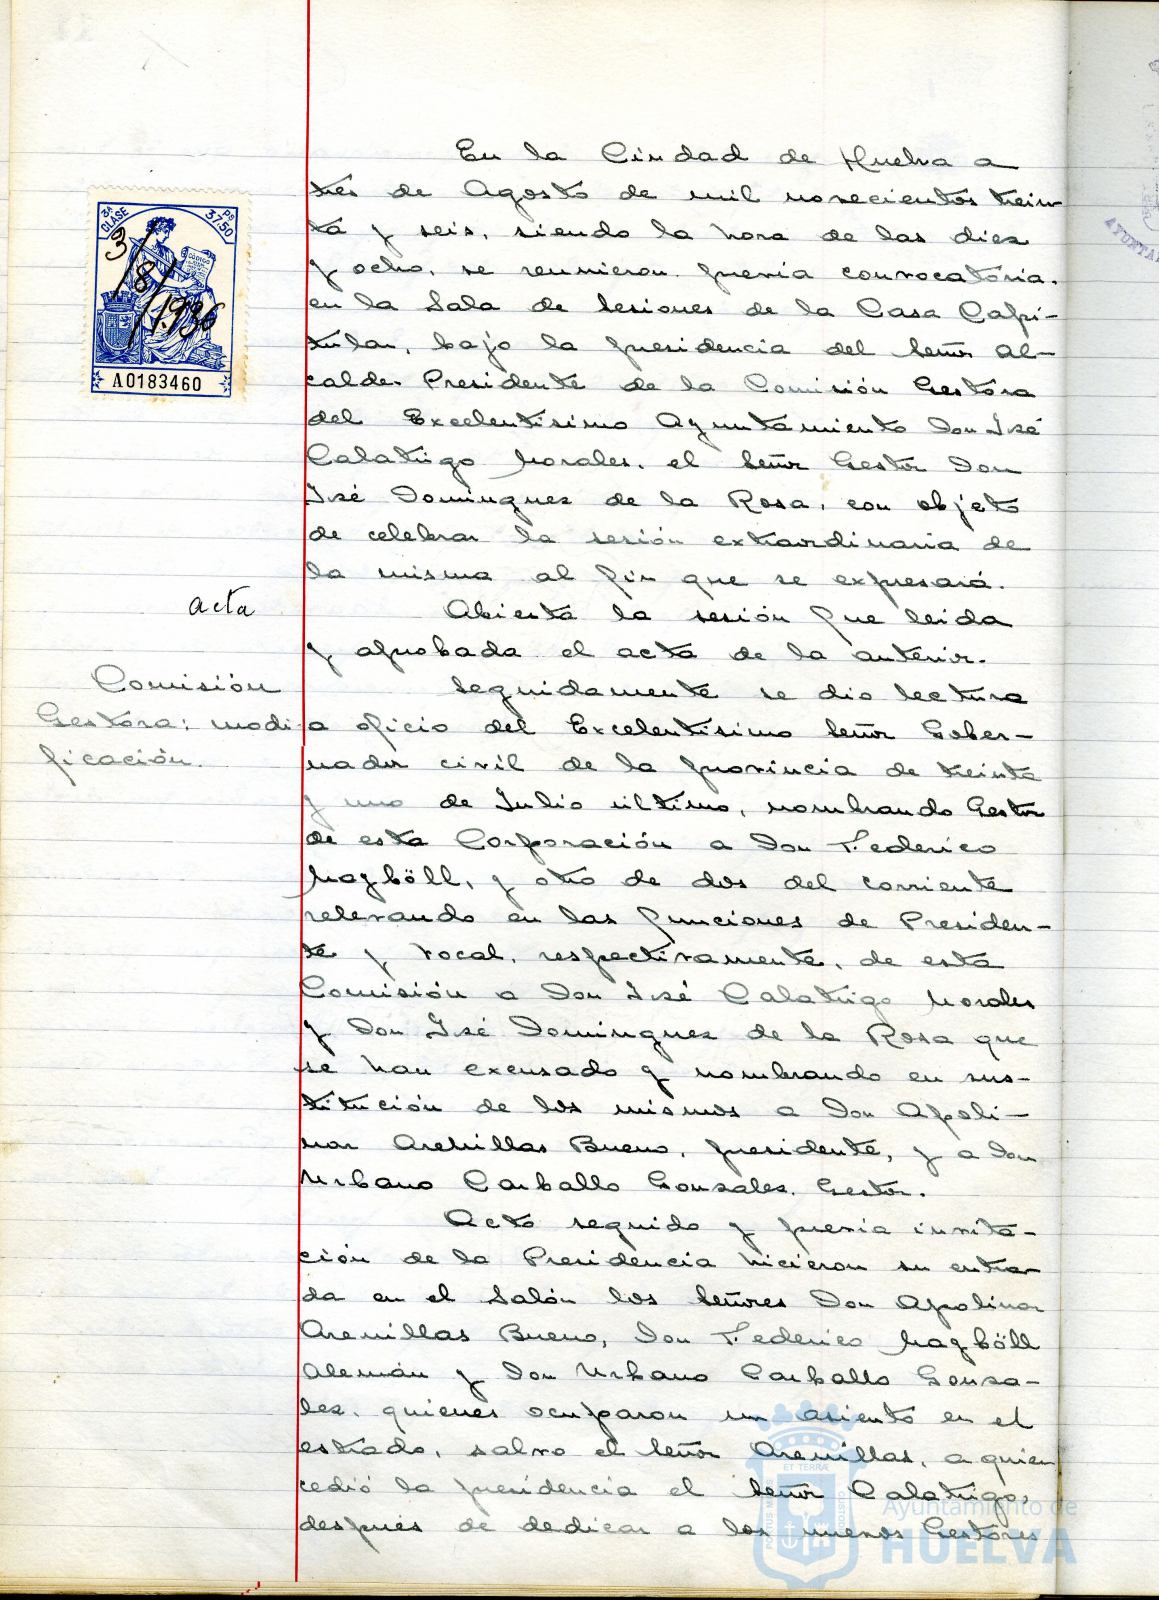 En la Ciudad de Huelva a
tres de Agosto de mil novecientos trein-
ta y seis, siendo la hora de las diez
y ocho, se reunieron previa convocatoria,
en la Sala de Sesiones de la Casa Capi-
tular, bajo la presidencia del Señor Al-
calde Presidente de la Comisión Gestora
del Excelentísimo Ayuntamiento Don José
Calatrigo Morales, el Señor Gestor Don
José Domínguez de la Rosa, con objeto
de celebrar la sesión extraordinaria de
la misma al fin que se expresará.
acta
Abierta la sesión fue leida
y aprobada el acta de la anterior.
Comisión
Gestora: modi-
ficación.
Seguidamente se dio lectura
a oficio del Excelentísimo Señor Gober-
nador civil de la provincia de treinta
y uno de Julio último, nombrando Gestor
de esta Corporación a Don Federico
Magböll, y otro de dos del corriente
relevando en las funciones de Presiden-
te y Vocal, respectivamente, de esta
Comisión a Don José Calatrigo Morales
y Don José Domínguez de la Rosa que
se han excusado y nombrando en sus-
titución de los mismos a Don Apoli-
nar Arenillas Bueno, presidente, y a Don
Urbano Carballo Gonzales, Gestor.
Acto seguido y previa invita-
ción de la Presidencia hicieron su entra-
da en el Salón los Señores Don Apolinar
Arenillas Bueno, Don Federico Magböll
Alemán y Don Urbano Carballo Gonza-
lez, quienes ocuparon un asiento en el
estrado, salvo el Señor Arenillas, a quien
cedió la presidencia el Señor Calatrigo,
después de dedicar a los nuevos Gestores
3ª CLASE
37,50 Ps
CODIGO
3/8/1936
A0183460
AYUNTA
Ayuntamiento de
HUELVA